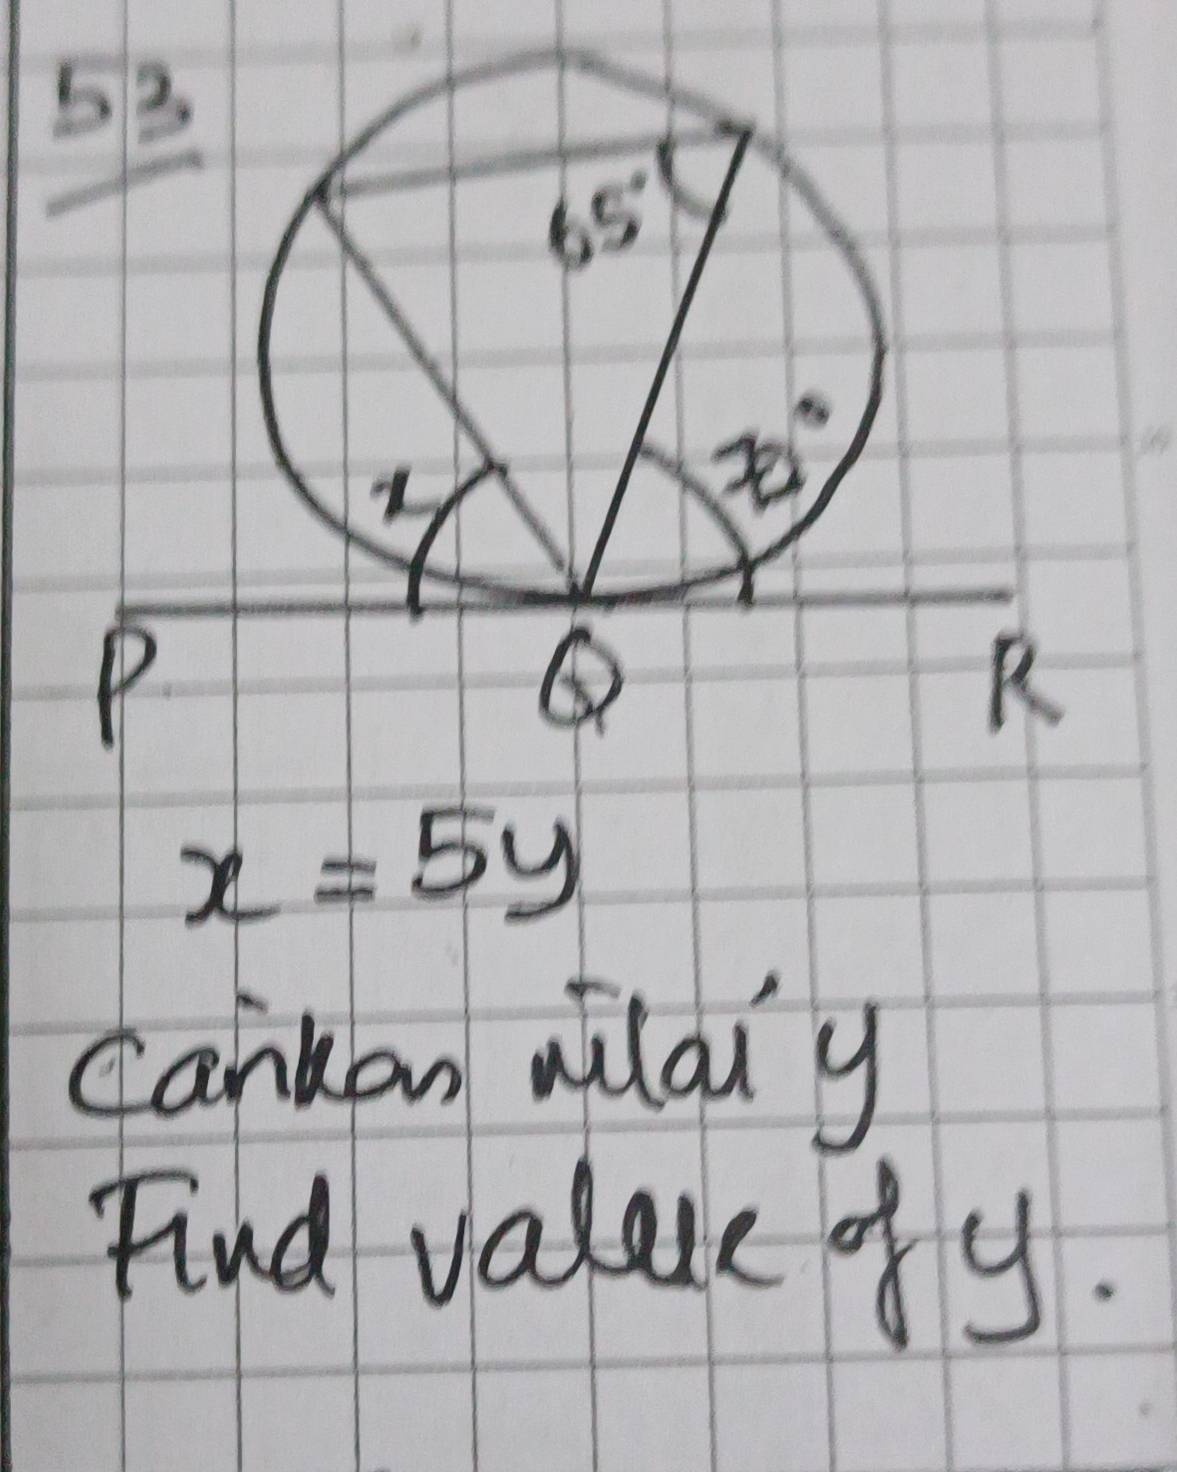 53
65°
x
70°
P Q R
x = 5y
Carikan nilai y
Find value of y.